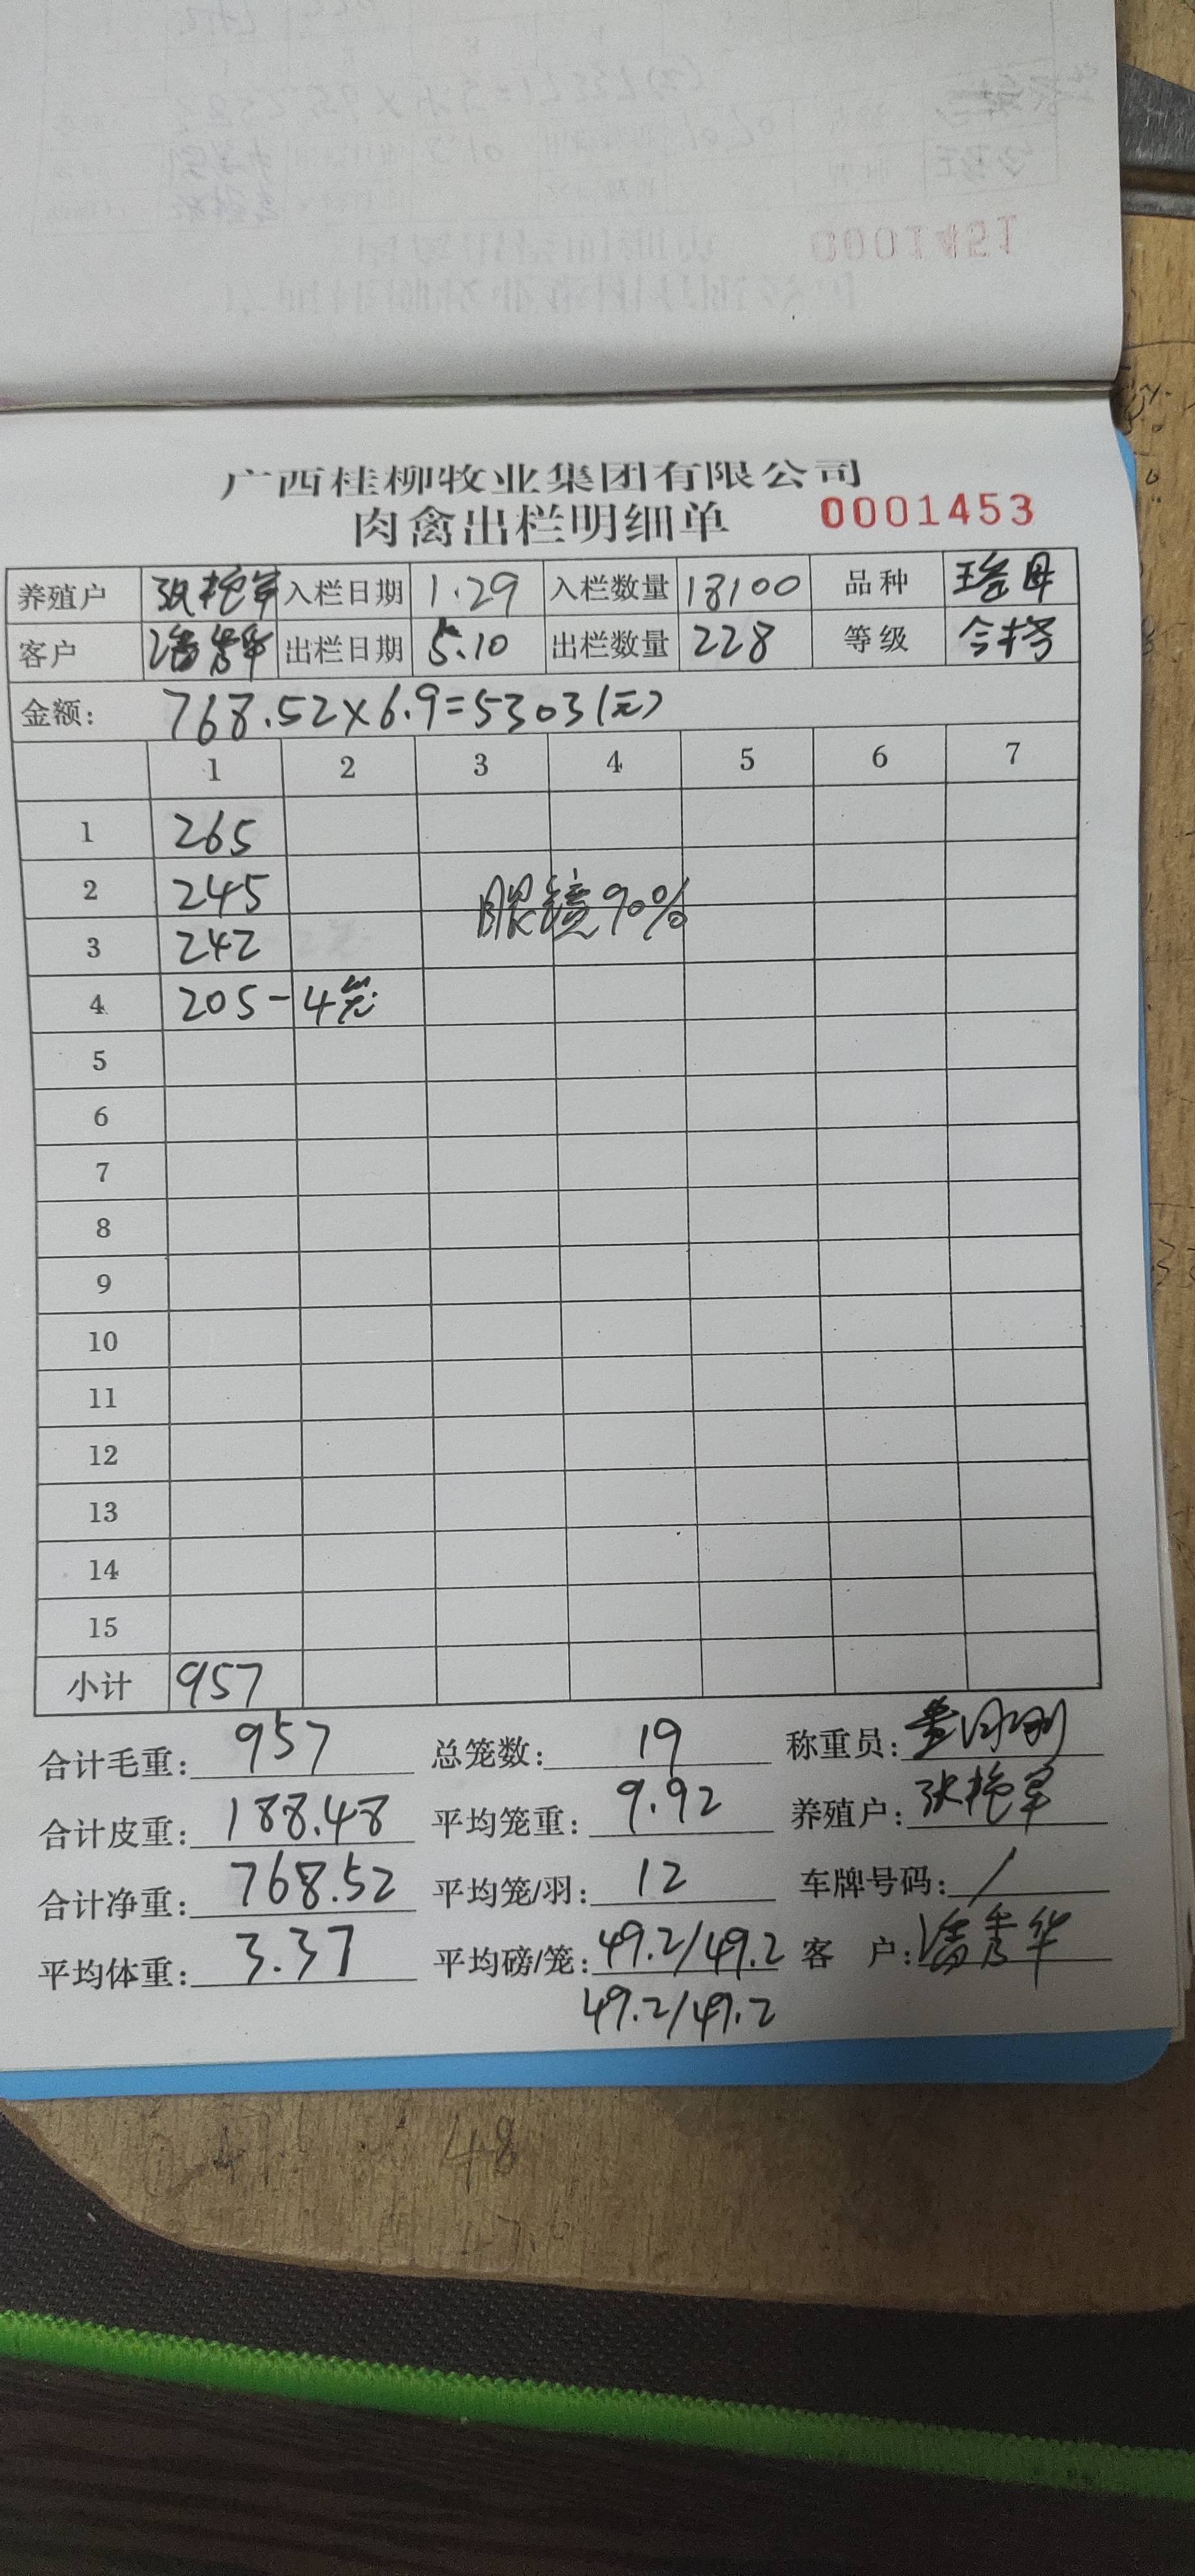 广西桂柳牧业集团有限公司
肉禽出栏明细单 0001453
养殖户 张艳军 入栏日期 1.29 入栏数量 18100 品种 瑶母
客户 潘秀华 出栏日期 5.10 出栏数量 228 等级 合格
金额: 768.52×6.9=5303(元)
1 2 3 4 5 6 7
1 265
2 245 眼镜90%
3 242
4 205-4笼
5
6
7
8
9
10
11
12
13
14
15
小计 957
合计毛重: 957 总笼数: 19 称重员:
合计皮重: 188.48 平均笼重: 9.92 养殖户: 张艳军
合计净重: 768.52 平均笼/羽: 12 车牌号码: /
平均体重: 3.37 平均磅/笼: 49.2/49.2 客户: 潘秀华
49.2/49.2
48